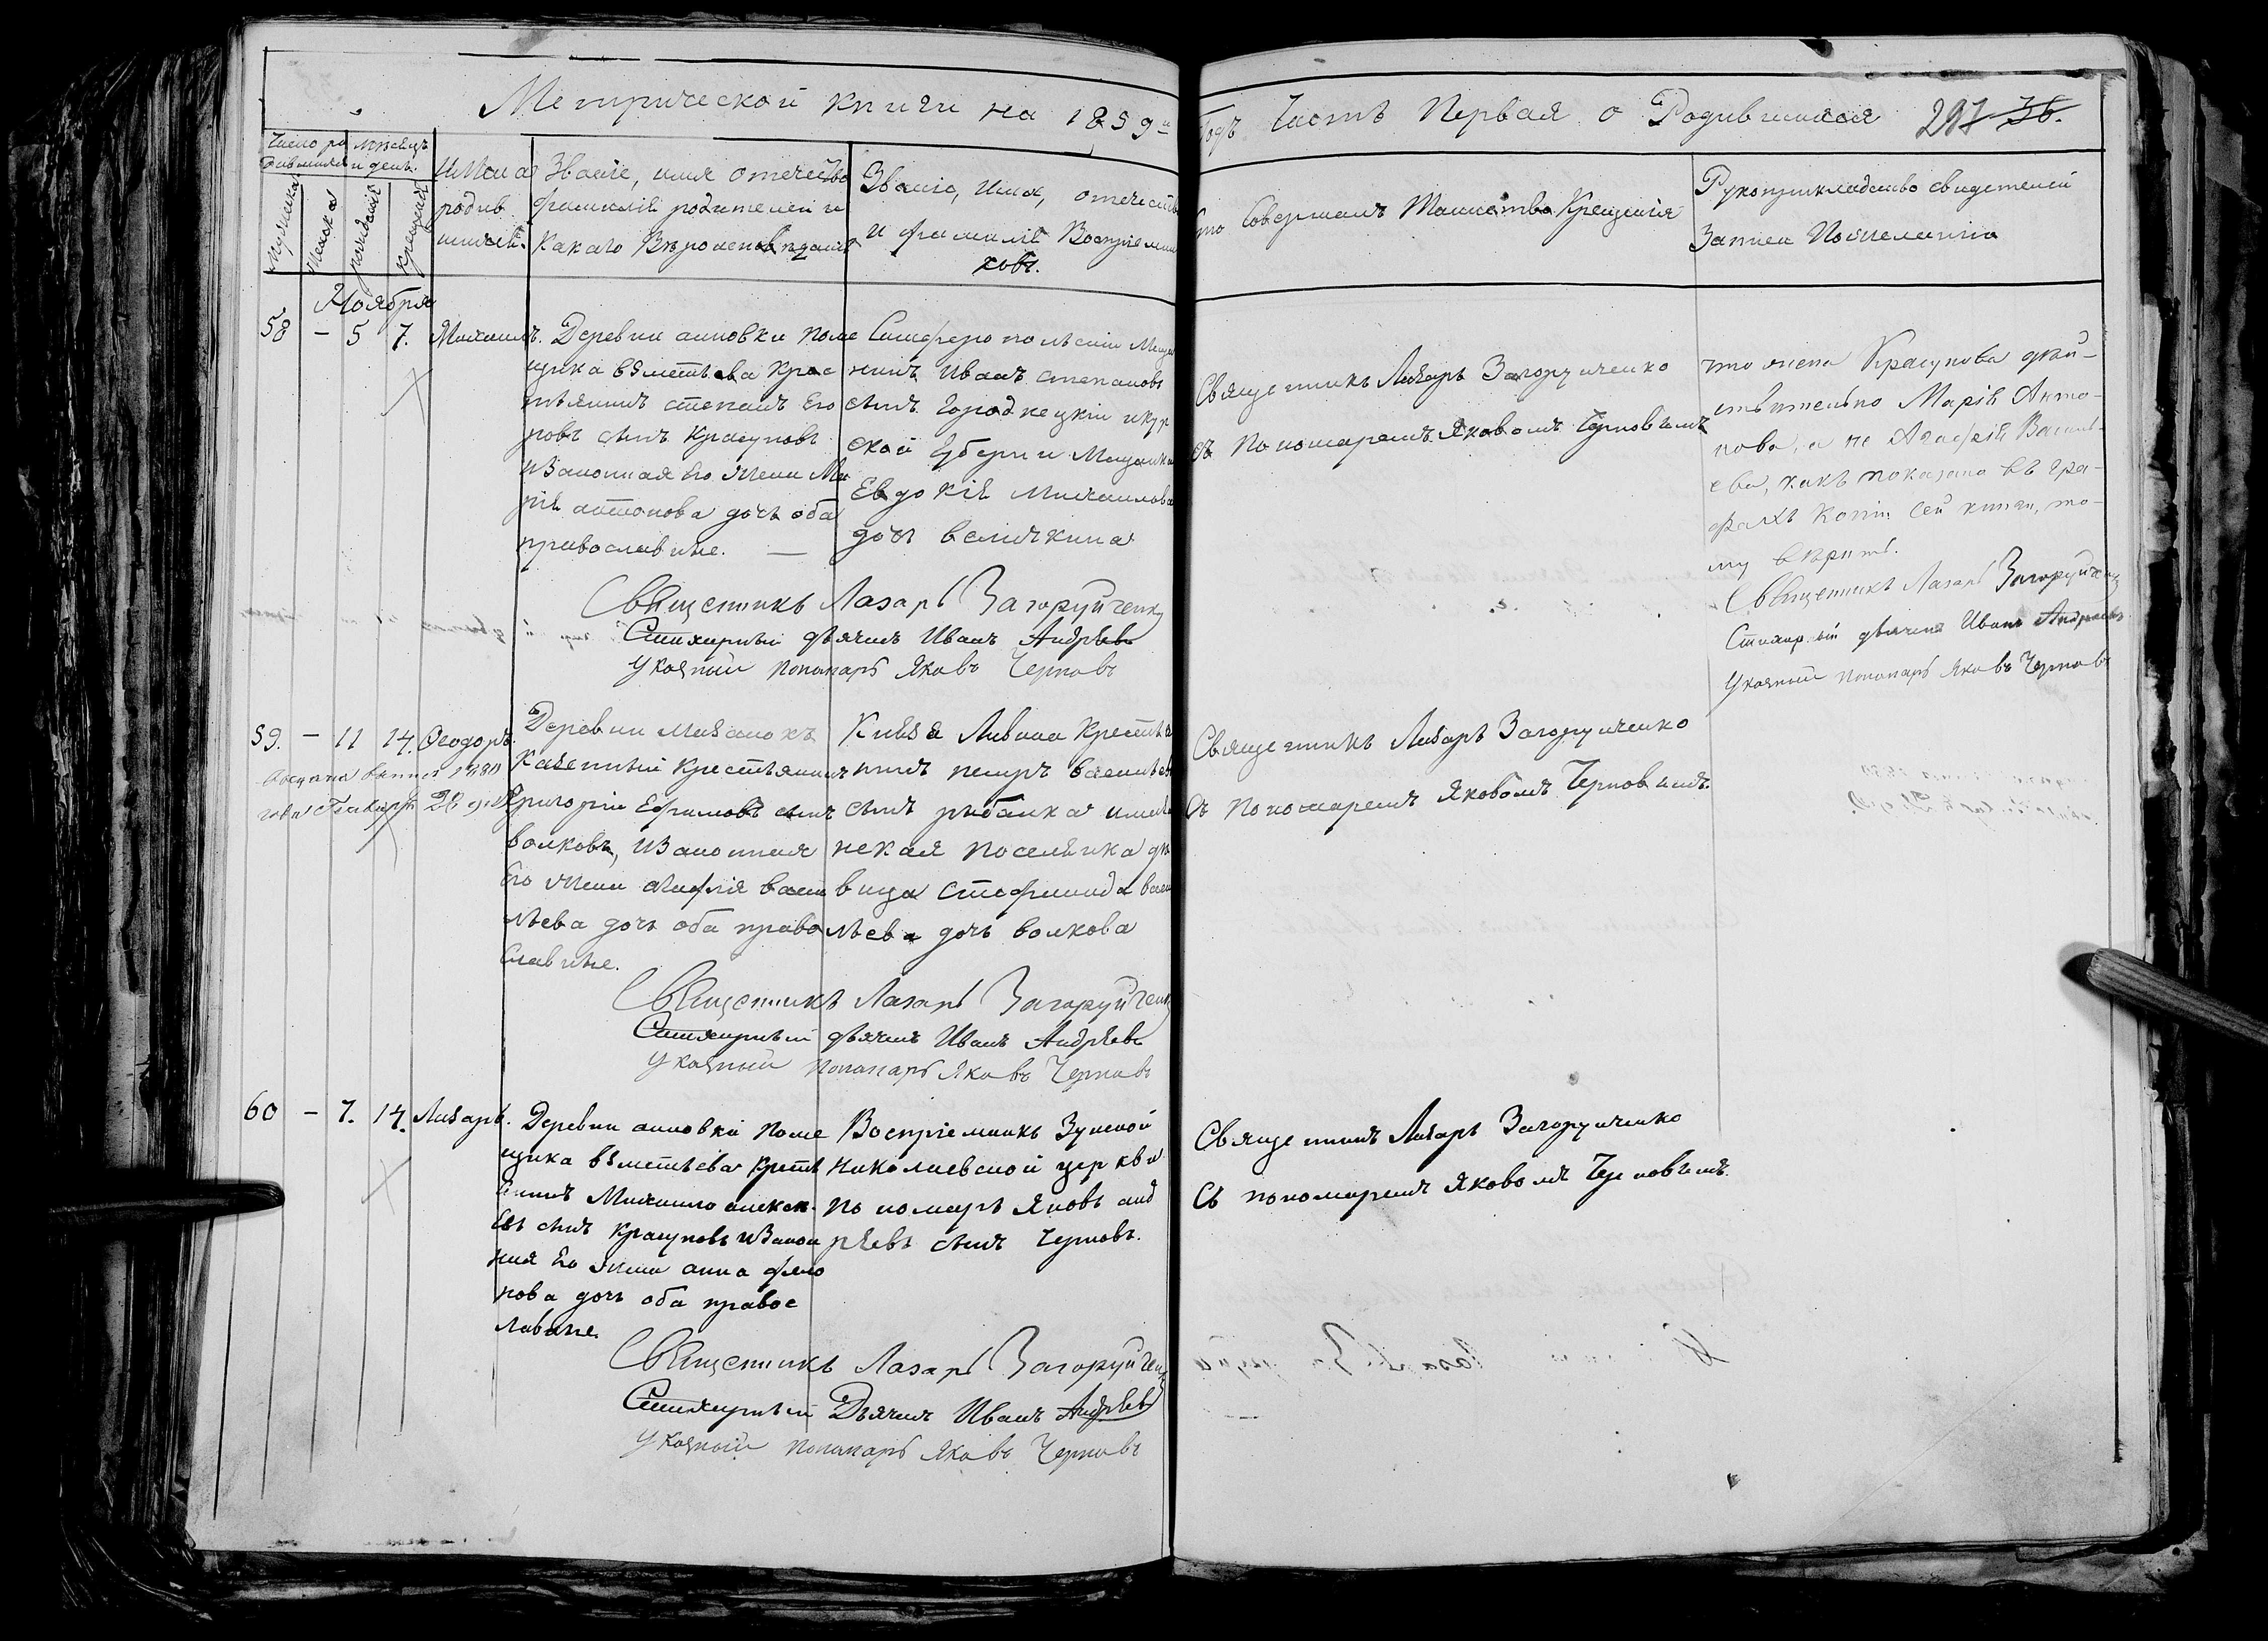 Метрической книги на 1859й
Годъ Часть Первая о Родившихся 297 36.
Число ро
дившихся
Мѣсяцъ
и день.
Мужеска
Женска
рожденія
крещенія
Имена
родив
шихся.
Званіе, имя отечество
фамилія родителей и
какаго Вѣроисповѣданія
Званіе, имя, отечество
и фамилія Воспріемни
ковъ.
Кто Совершалъ Таинство Крещенія
Рукоприкладство свидетелей
Записи По желанію
Ноября
58 - 5 7. Михаилъ.
Деревни анновки поме
щика вѣметьева Крес
тьянинъ степанъ Его
ровъ сынъ Красуновъ
изаконная его жена Ма
рія антонова дочь оба
православные.
Симферопольскій Меща
нинъ Иванъ степановъ
сынъ Городнецкій икур
ской Губерніи Мещанка
Евдокія Михаилова
дочь величкина
Священникъ Лазарь Загоруйченко
съ Пономаремъ Яковомъ Черновымъ
что жена Красунова дѣй-
ствительно Марія Анто-
нова, а не Агафія Василь-
ева, какъ показано въ гра-
фахъ копіи сей книги, то-
му вѣрить.
Священникъ Лазарь Загоруйченко
Стихарный дьячекъ Иванъ Андреевъ
Указный пономарь Яковъ Черновъ
Священникъ Лазарь Загоруйченко
Стихарный дьячекъ Иванъ Андрѣевъ
Указный пономарь Яковъ Черновъ
59. - 11 14. Ѳеодоръ.
Деревни
Казенный крестьянинъ
Григорій Ефимовъ сынъ
волковъ, изаконная
его жена агафія васи
льева дочь оба право
славные.
Князя Ливина Крестья
нинъ петръ васильевъ
сынъ рыбалка
нская поселянка дѣ
вица Стефанида васи
льева дочь волкова
Священникъ Лазарь Загоруйченко
Съ пономаремъ Яковомъ Черновымъ.
Священникъ Лазарь Загоруйченко
Стихарный дьячекъ Иванъ Андрѣевъ
Указный пономарь Яковъ Черновъ
60 - 7. 14. Лазарь.
Деревни анновки поме
щика вѣметьева кресть
янинъ Михаило алексѣ
евъ сынъ Красуновъ изакон
ная его жена анна фило
нова дочь оба правос
лавные.
Воспріемникъ Зуевской
николаевской церкви
пономарь Яковъ анд
рѣевъ сынъ Черновъ.
Священникъ Лазарь Загоруйченко
Съ пономаремъ Яковомъ Черновымъ.
Священникъ Лазарь Загоруйченко
Стихарный Дьячекъ Иванъ Андрѣевъ
Указный пономарь Яковъ Черновъ